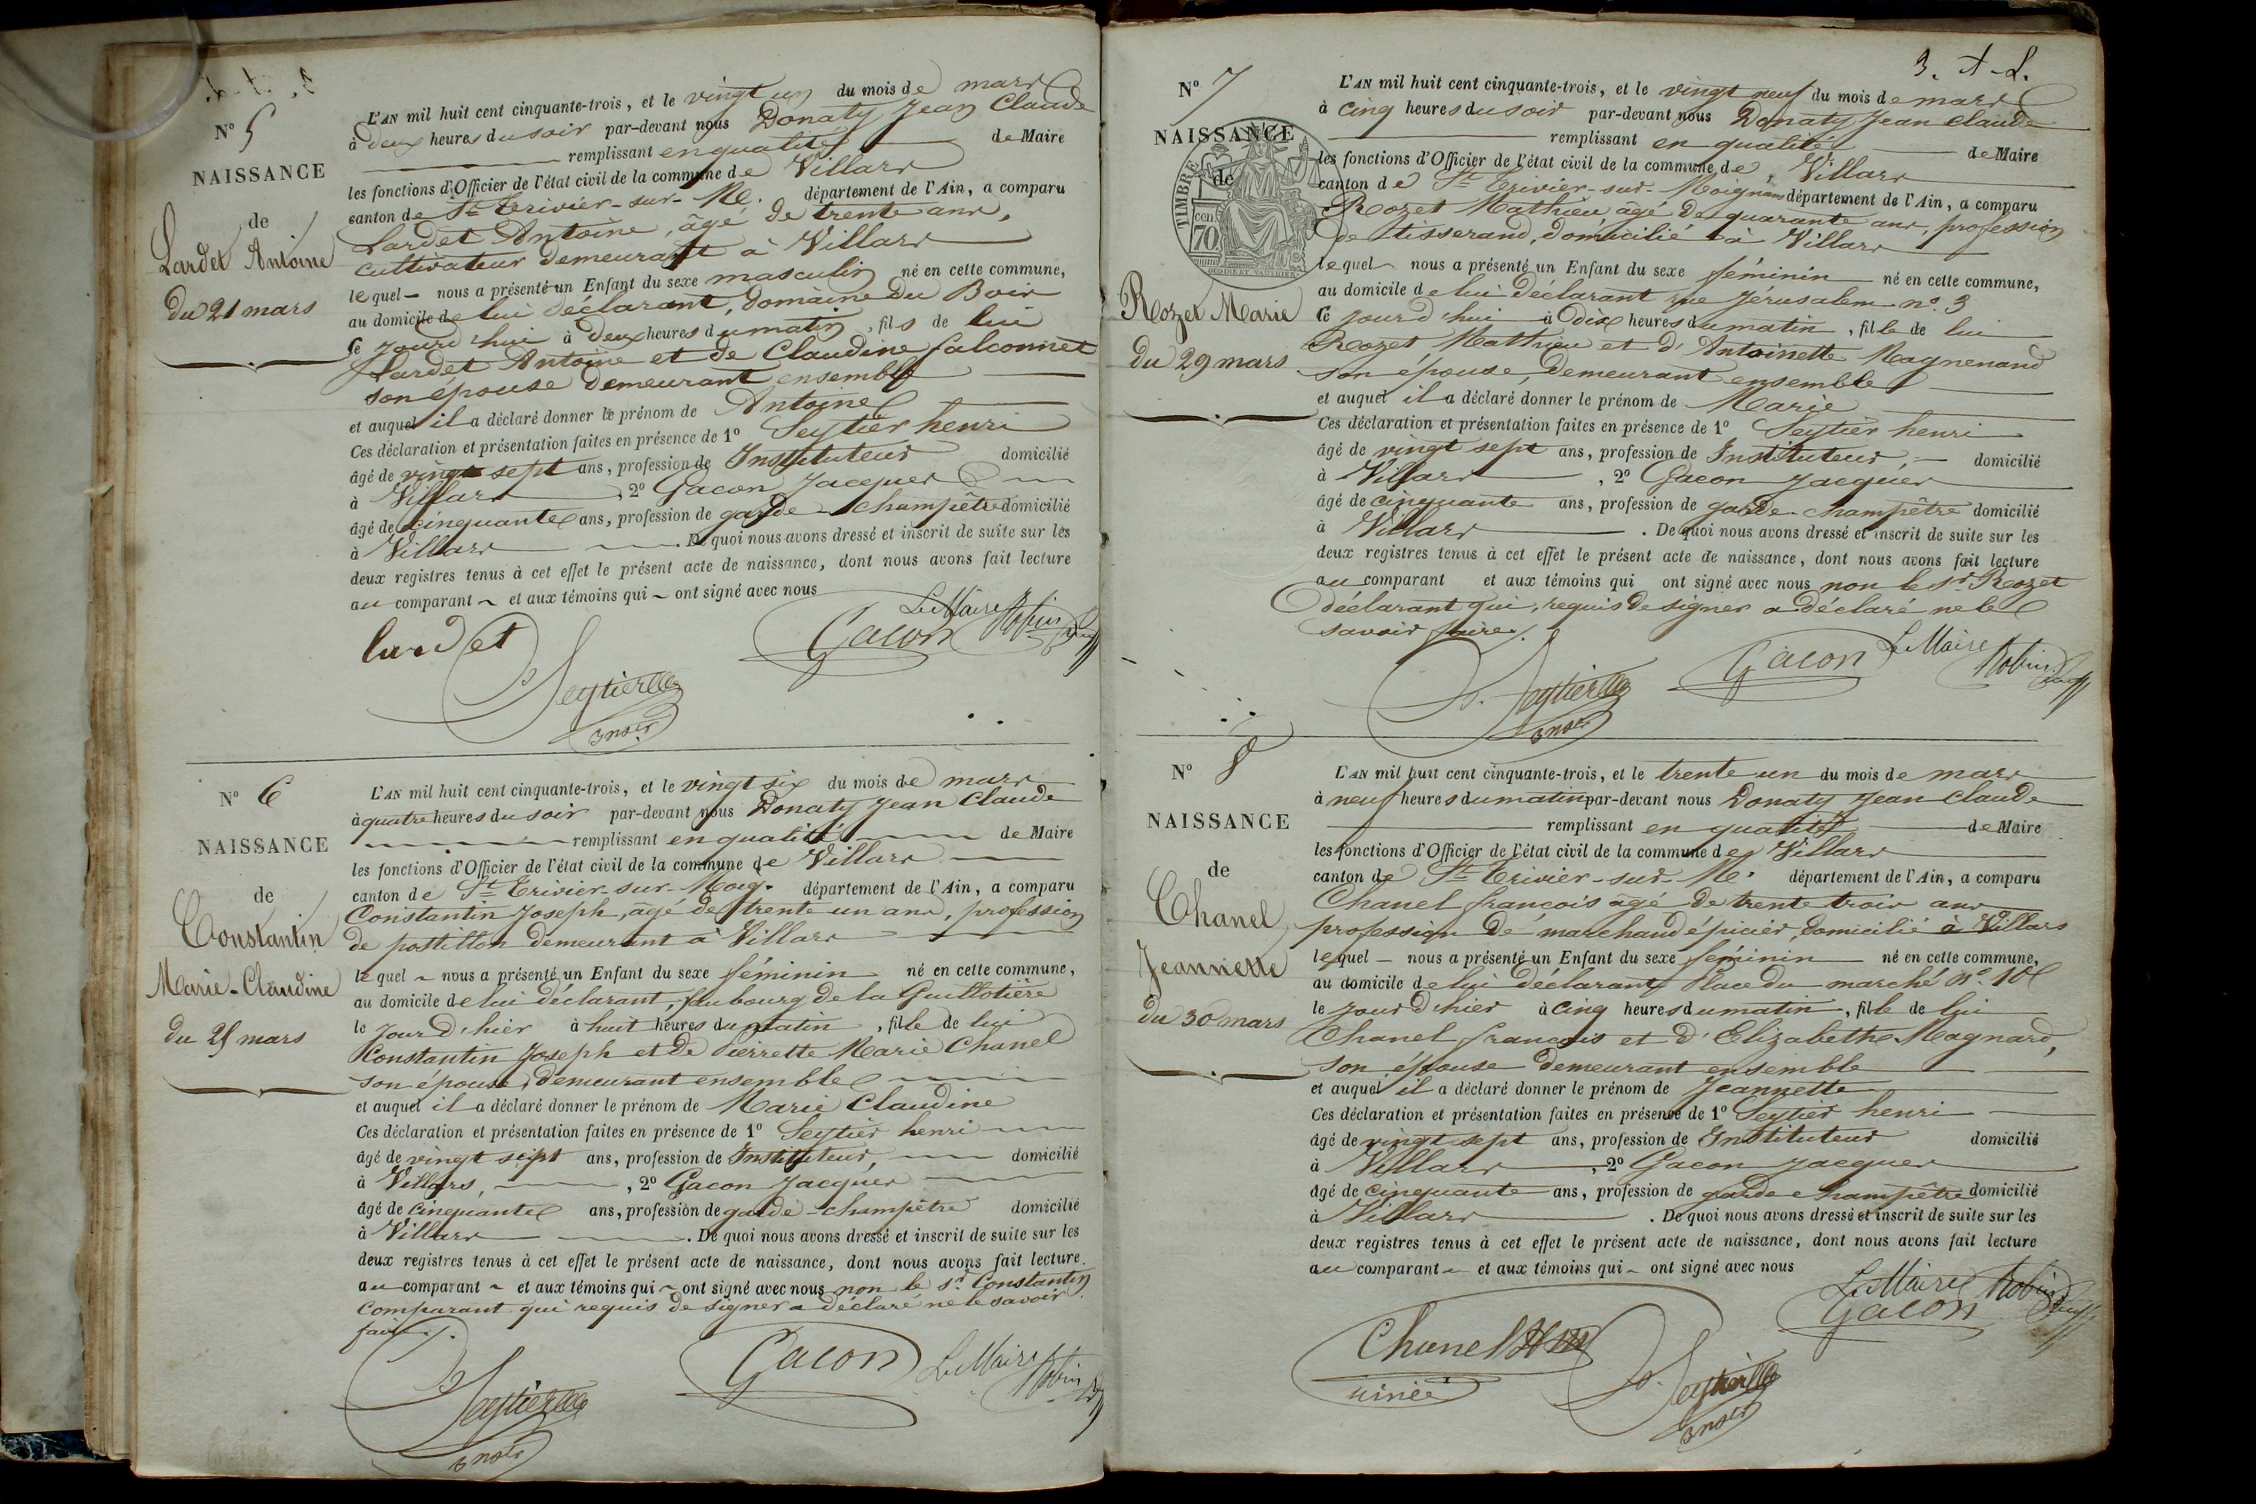 N° 5
NAISSANCE
de
Lardet Antoine
du 21 mars
L'AN mil huit cent cinquante-trois, et le vingt un du mois de mars
à deux heures du soir par-devant nous Donaty Jean Claude
remplissant en qualité de Maire
les fonctions d'Officier de l'état civil de la commune de Villars
canton de St Trivier-sur-Me. département de l'Ain, a comparu
Lardet Antoine, âgé de trente ans,
cultivateur demeurant à Villars
lequel nous a présenté un Enfant du sexe masculin né en cette commune,
au domicile de lui déclarant, domaine du Bois
Ce jourd'hui à deux heures du matin, fils de lui
Lardet Antoine et de Claudine falconnet
son épouse demeurant ensemble
et auquel il a déclaré donner le prénom de Antoine
Ces déclaration et présentation faites en présence de 1° Seytier henri
âgé de vingt sept ans, profession de Instituteur domicilié
à Villars, 2° Gacon Jacques
âgé de cinquante ans, profession de garde-champêtre domicilié
à Villars. De quoi nous avons dressé et inscrit de suite sur les
deux registres tenus à cet effet le présent acte de naissance, dont nous avons fait lecture
au comparant et aux témoins qui ont signé avec nous
Le Maire
lardet Gacon
Seytier
N° 6
NAISSANCE
de
Constantin
Marie-Claudine
du 25 mars
L'AN mil huit cent cinquante-trois, et le vingt six du mois de mars
à quatre heures du soir par-devant nous Donaty Jean Claude
remplissant en qualité de Maire
les fonctions d'Officier de l'état civil de la commune de Villars
canton de St Trivier-sur-Moig. département de l'Ain, a comparu
Constantin Joseph, âgé de trente un ans, profession
de postillon demeurant à Villars
lequel nous a présenté un Enfant du sexe féminin né en cette commune,
au domicile de lui déclarant, faubourg de la Guillotière
le jour d'hier à huit heures du matin, fille de lui
Constantin Joseph et de Pierrette Marie Chanel
son épouse, demeurant ensemble
et auquel il a déclaré donner le prénom de Marie Claudine
Ces déclaration et présentation faites en présence de 1° Seytier henri
âgé de vingt sept ans, profession de Instituteur, domicilié
à Villars, 2° Gacon Jacques
âgé de cinquante ans, profession de garde-champêtre domicilié
à Villars. De quoi nous avons dressé et inscrit de suite sur les
deux registres tenus à cet effet le présent acte de naissance, dont nous avons fait lecture
au comparant et aux témoins qui ont signé avec nous non le sr. Constantin
comparant qui requis de signer a déclaré ne le savoir
faire.
Gacon Le Maire
Seytier
3. A-L.
N° 7
NAISSANCE
de
TIMBRE
cen 70
Rozet Marie
du 29 mars
L'AN mil huit cent cinquante-trois, et le vingt neuf du mois de mars
à cinq heures du soir par-devant nous Donaty Jean Claude
remplissant en qualité de Maire
les fonctions d'Officier de l'état civil de la commune de Villars
canton de St Trivier-sur-Moignans département de l'Ain, a comparu
Rozet Mathieu, âgé de quarante ans, profession
de tisserand, domicilié à Villars
lequel nous a présenté un Enfant du sexe féminin né en cette commune,
au domicile de lui déclarant rue Jérusalem n° 3
Ce jourd'hui à dix heures du matin, fille de lui
Rozet Mathieu et d'Antoinette Magnenand
son épouse, demeurant ensemble
et auquel il a déclaré donner le prénom de Marie
Ces déclaration et présentation faites en présence de 1° Seytier henri
âgé de vingt sept ans, profession de Instituteur, domicilié
à Villars, 2° Gacon Jacques
âgé de cinquante ans, profession de garde-champêtre domicilié
à Villars. De quoi nous avons dressé et inscrit de suite sur les
deux registres tenus à cet effet le présent acte de naissance, dont nous avons fait lecture
au comparant et aux témoins qui ont signé avec nous non le sr. Rozet
déclarant qui, requis de signer a déclaré ne le
savoir faire.
Gacon Le Maire
Seytier
N° 8
NAISSANCE
de
Chanel
Jeannette
du 30 mars
L'AN mil huit cent cinquante-trois, et le trente un du mois de mars
à neuf heures du matin par-devant nous Donaty Jean Claude
remplissant en qualité de Maire
les fonctions d'Officier de l'état civil de la commune de Villars
canton de St Trivier-sur-Me. département de l'Ain, a comparu
Chanel françois âgé de trente trois ans
profession de marchand épicier, domicilié à Villars
lequel nous a présenté un Enfant du sexe féminin né en cette commune,
au domicile de lui déclarant Place du marché N°. 10
le jour d'hier à cinq heures du matin, fille de lui
Chanel français et d'Elizabeth Magnard,
son épouse demeurant ensemble
et auquel il a déclaré donner le prénom de Jeannette
Ces déclaration et présentation faites en présence de 1° Seytier henri
âgé de vingt sept ans, profession de Instituteur domicilié
à Villars, 2° Gacon Jacques
âgé de cinquante ans, profession de garde champêtre domicilié
à Villars. De quoi nous avons dressé et inscrit de suite sur les
deux registres tenus à cet effet le présent acte de naissance, dont nous avons fait lecture
au comparant et aux témoins qui ont signé avec nous
Le Maire
Gacon
Chanel
Seytier